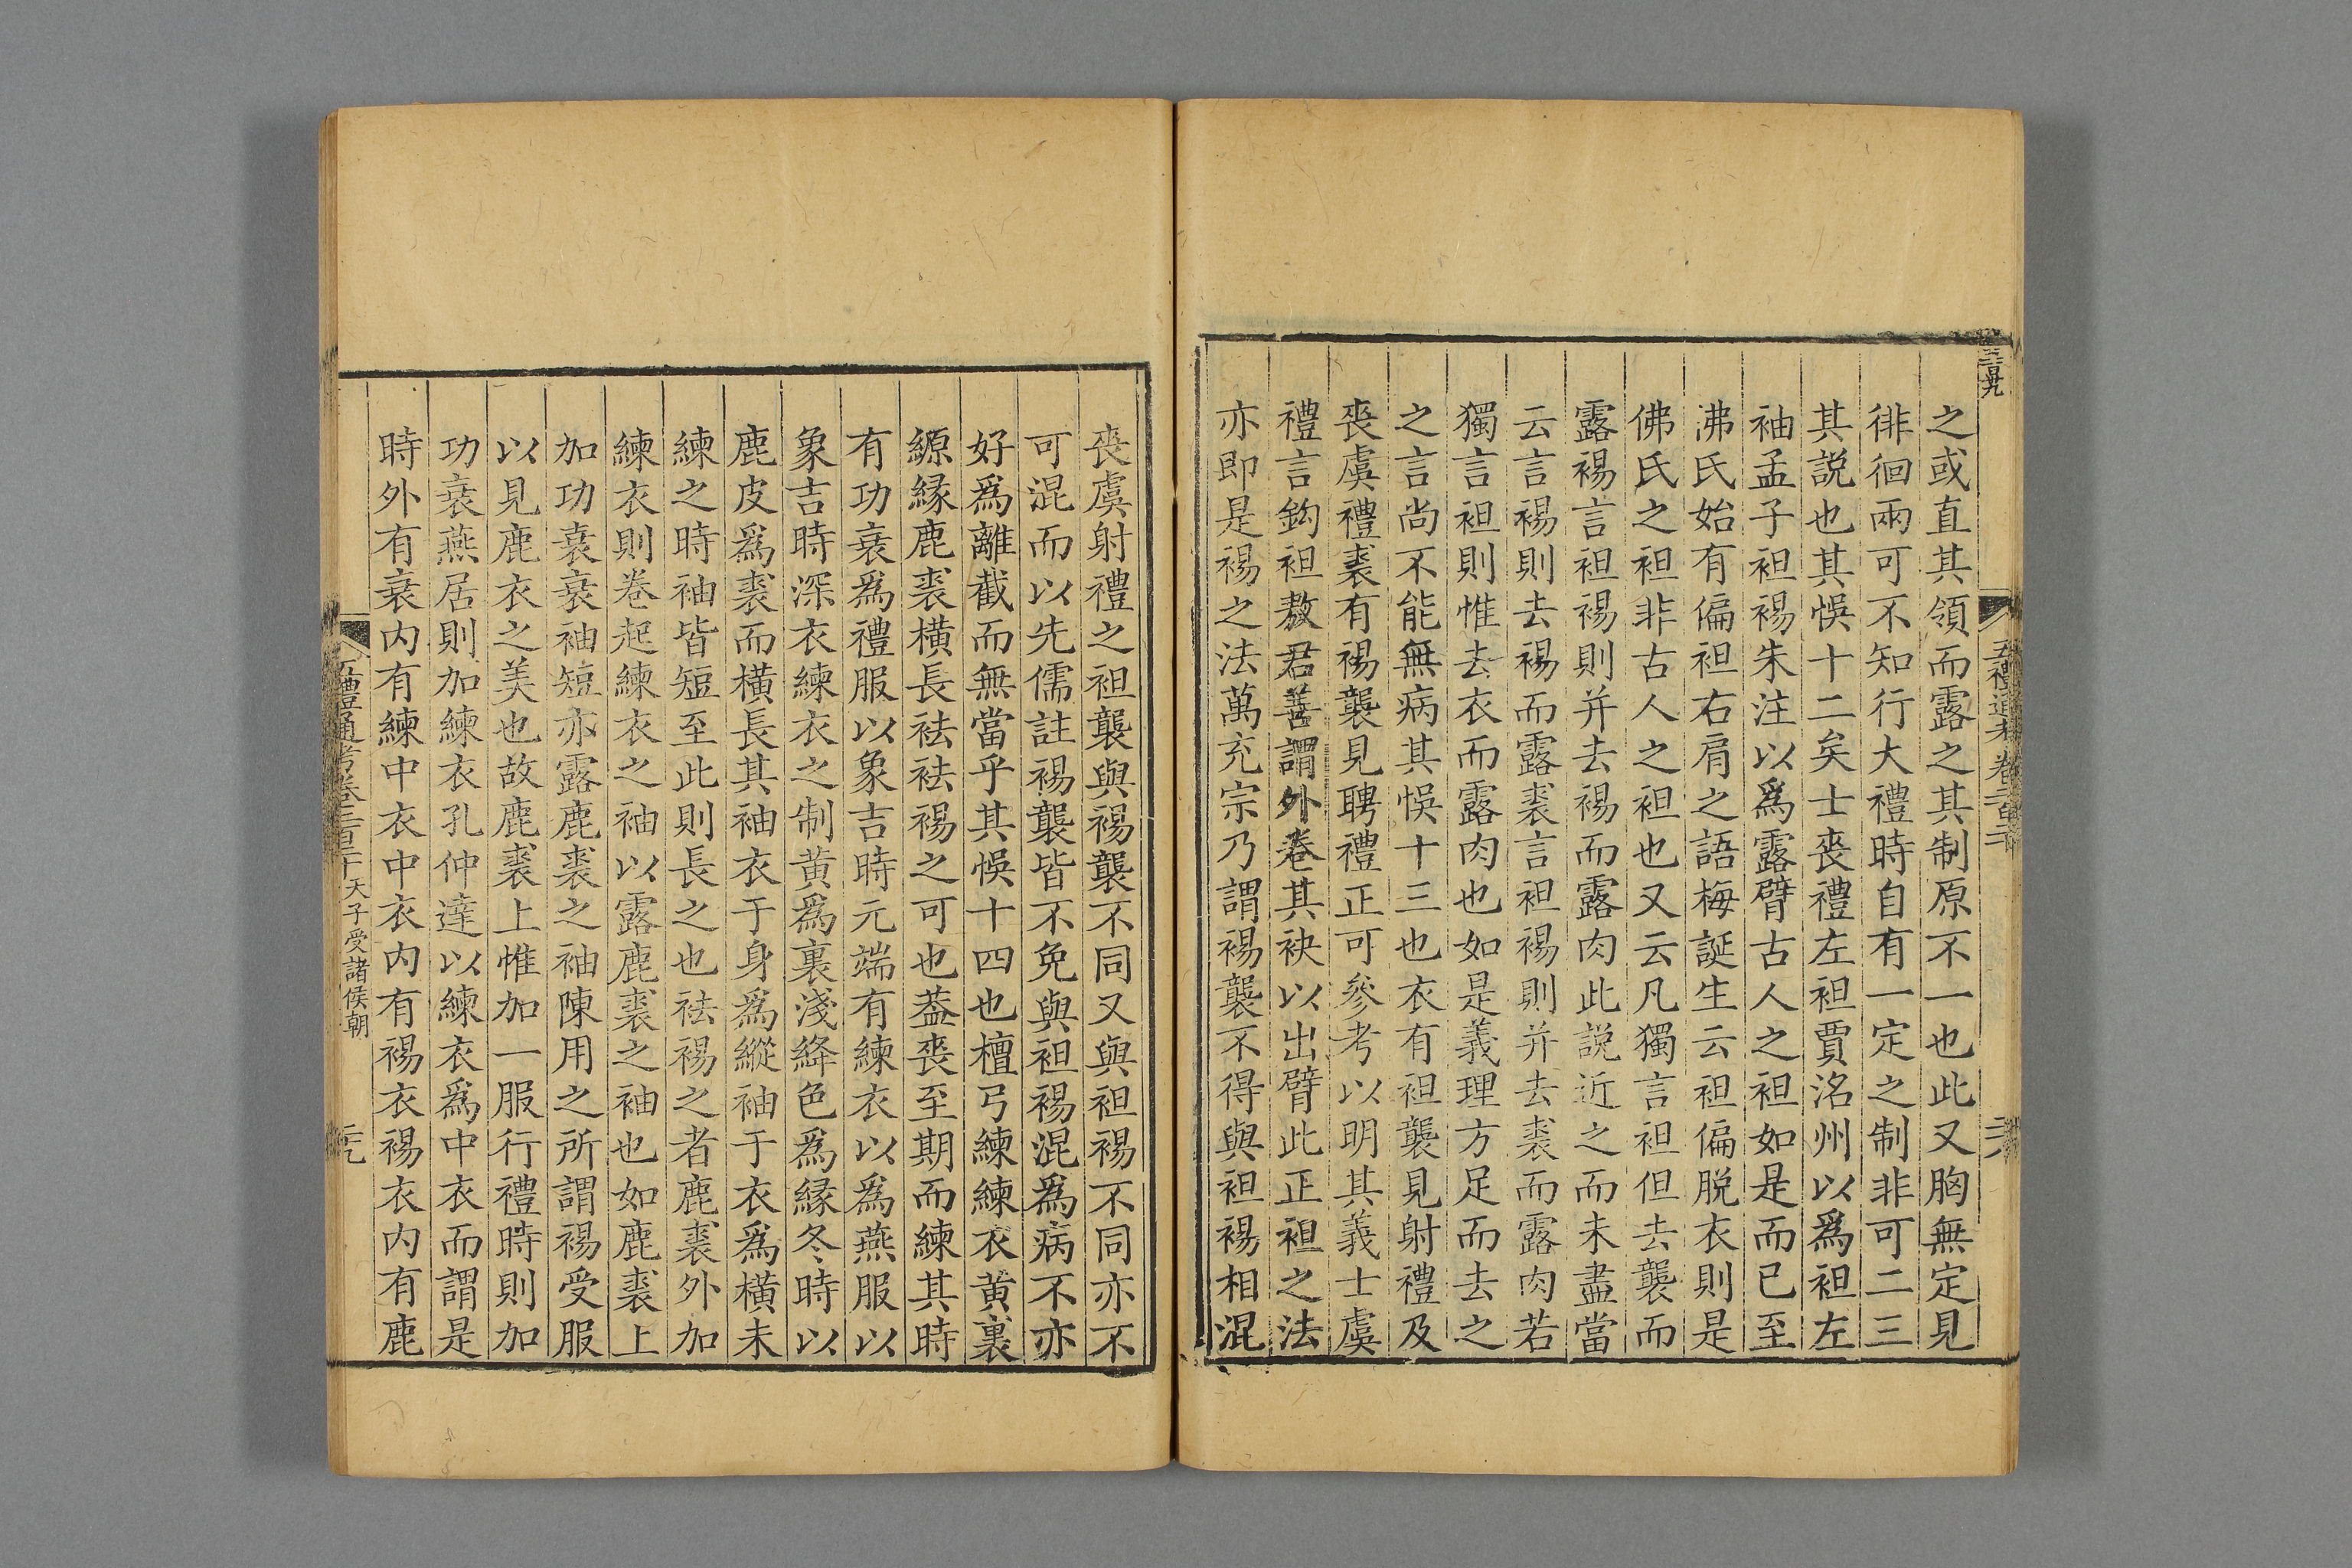 之或直其領而露之其制原不一也此又胸無定見
徘徊兩可不知行大禮時自有一定之制非可二三
其説也其悞十二矣士喪禮左袒賈洺州以爲袒左
袖孟子袒裼朱注以爲露臂古人之袒如是而已至
沸氏始有偏袒右肩之語梅誕生云袒偏脱衣則是
佛氏之袒非古人之袒也又云凡獨言袒但去襲而
露裼言袒裼則并去裼而露肉此説近之而未盡當
云言裼則去裼而露裘言袒裼則并去裘而露肉若
獨言袒則惟去衣而露肉也如是義理方足而去之
之言尚不能無病其悞十三也衣有袒襲見射禮及
喪虞禮裘有裼襲見聘禮正可參考以明其義士虞
禮言鈎袒敖君善謂外卷其袂以出臂此正袒之法
亦即是裼之法萬充宗乃謂裼襲不得與袒裼相混
喪虞射禮之袒襲與裼襲不同又與袒裼不同亦不
可混而以先儒註裼襲皆不免與袒裼混爲病不亦
好爲離截而無當乎其悞十四也檀弓練練衣黄裏
縓緣鹿裘横長袪袪裼之可也葢喪至期而練其時
有功衰爲禮服以象吉時元端有練衣以爲燕服以
象吉時深衣練衣之制黄爲裏淺絳色爲緣冬時以
鹿皮爲裘而横長其袖衣于身爲縱袖于衣爲横未
練之時袖皆短至此則長之也袪裼之者鹿裘外加
練衣則卷起練衣之袖以露鹿裘之袖也如鹿裘上
加功衰衰袖短亦露鹿裘之袖陳用之所謂裼受服
以見鹿衣之美也故鹿裘上惟加一服行禮時則加
功衰燕居則加練衣孔仲達以練衣爲中衣而謂是
時外有衰内有練中衣中衣内有裼衣裼衣内有鹿
五禮通考卷二百二十 天子受諸侯朝